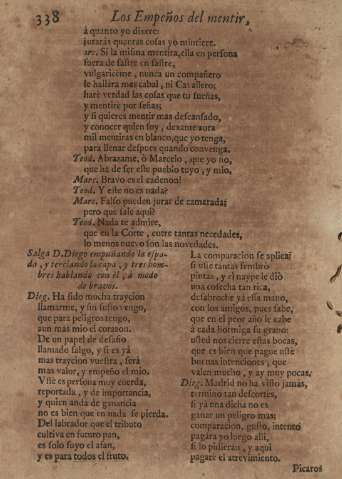 338
Los Empeños del mentir,
à quanto yo dixere:
jurarás quantas cosas yo mintiere.
Marc. Si la misma mentira, ella en persona
fuera de sastre en sastre,
vulgaricème, nunca un compañero
se hallara mas cabal, ni Cavallero;
harè verdad las cosas que tu sueñas,
y mentirè por señas;
y si quieres mentir mas descansado,
y conocer quien soy, dexame aora
mil mentiras en blanco, que yo tenga,
para llenar despues quando convenga.
Teod. Abrazame, ò Marcelo, que yo no,
que ha de ser este pueblo tuyo, y mio.
Marc. Bravo es el cadenon!
Teod. Y este no es nada?
Marc. Falso pueden jurar de camarada;
pero que sale aqui?
Teod. Nada te admire,
que en la Corte, entre tantas necedades,
lo menos nuevo son las novedades.
Salga D. Diego empuñando la espa-
da, y terciando la capa, y tres hom-
bres hablando con èl, à modo
de bravos.
Dieg. Ha sido mucha traycion
llamarme, y sin susto vengo,
que para peligros tengo,
aun mas mio el corazon.
De un papel de desafio
llamado salgo, y si es yà
mas traycion vuestra, serà
mas valor, y empeño el mio.
Uste es persona muy cuerda,
reportada, y de importancia,
y quien anda de ganancia
no es bien que en nada se pierda.
Del labrador que el tributo
cultiva en futuro pan,
es solo suyo el afan,
y es para todos el fruto.
La comparacion se aplica;
si uste tantas sembrò
pintas, y el naype le diò
una cosecha tan rica,
desabroche yà essa mano,
con los amigos, pues sabe,
que en el peor año le cabe
à cada hormiga su grano:
usted nos cierre estas bocas,
que es bien que pague uste
buenas intenciones, que
valen mucho, y ay muy pocas.
Dieg. Madrid no ha visto jamas,
termino tan descortes,
si yà una dicha no es
ganar un peligro mas;
comparacion, gusto, intento
pagàra yo luego alli,
si lo pidieran, y aqui
pagarè el atrevimiento.
Picaros